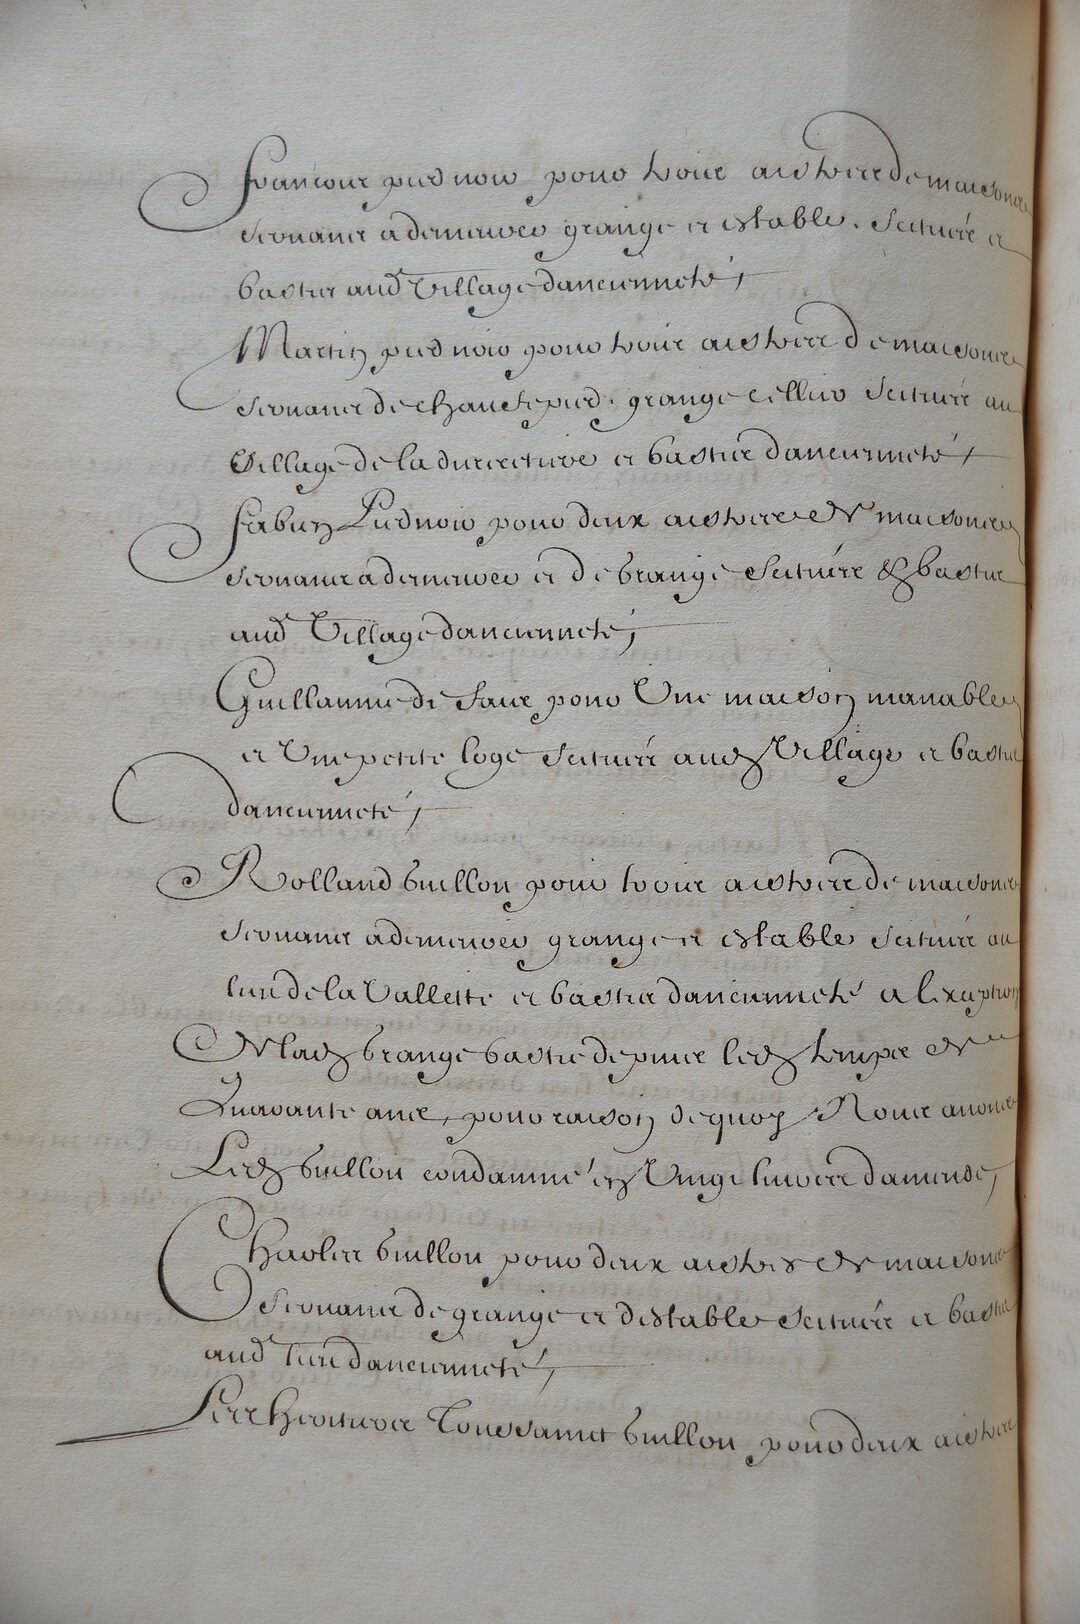 Francois piednoir pour trois aistres de maisons
servans a demeurer grange et estable, scituéz et
bastis aud Village dancienneté,
Martin piednoir pour trois aistres de maisons
servans de chaufepied, grange cellier scituéz au
Village de la et bastis dancienneté,
Piednoir pour deux aistres de maisons
servans a demeurer et de grange scituéz & bastis
aud Village dancienneté,
Guillaume de pour Une maison manable
et Une petite loge scituéz aud Village et bastis
dancienneté,
Rolland Guillon pour trois aistres de maisons
servans a demeurer, grange et estable scituéz au
lieu de la Vallette et bastis dancienneté a lexception
de lad grange bastie depuis led temps de
Quarante ans, pour raison de quoy Nous avons
Led Guillon condamné en Vingt livres damende,
Charles Guillon pour deux aistres de maisons
servans de grange et destable scituéz et bastis
aud lieu dancienneté,
Les heritiers Toussaint Guillon pour deux aistres